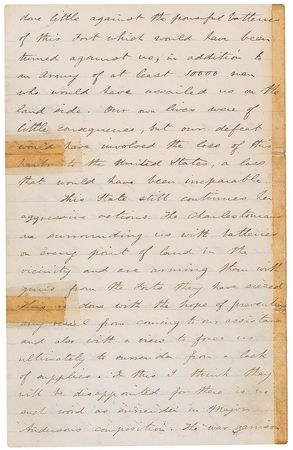 done little against the powerful batteries
of this Fort which would have been
turned against us, in addition to
an Army of at least 10000 men
who would have assailed us on the
land side. Our own lives were of
little consequence, but our defeat
would have involved the loss of this
harbor to the United States, a loss
that would have been irreparable.
This State still continues her
aggressive actions. The Charlestonians
are surrounding us with batteries
on every point of land in the
vicinity and are arming them with
guns from the forts they have seized
This is done with the hope of preventing
any vessel from coming to our assistance
and also with a view to force us
ultimately to surrender from a lack
of supplies. In this I think they
will be disappointed for there is no
such word as surrender in Major
Andersons composition. The war garrison